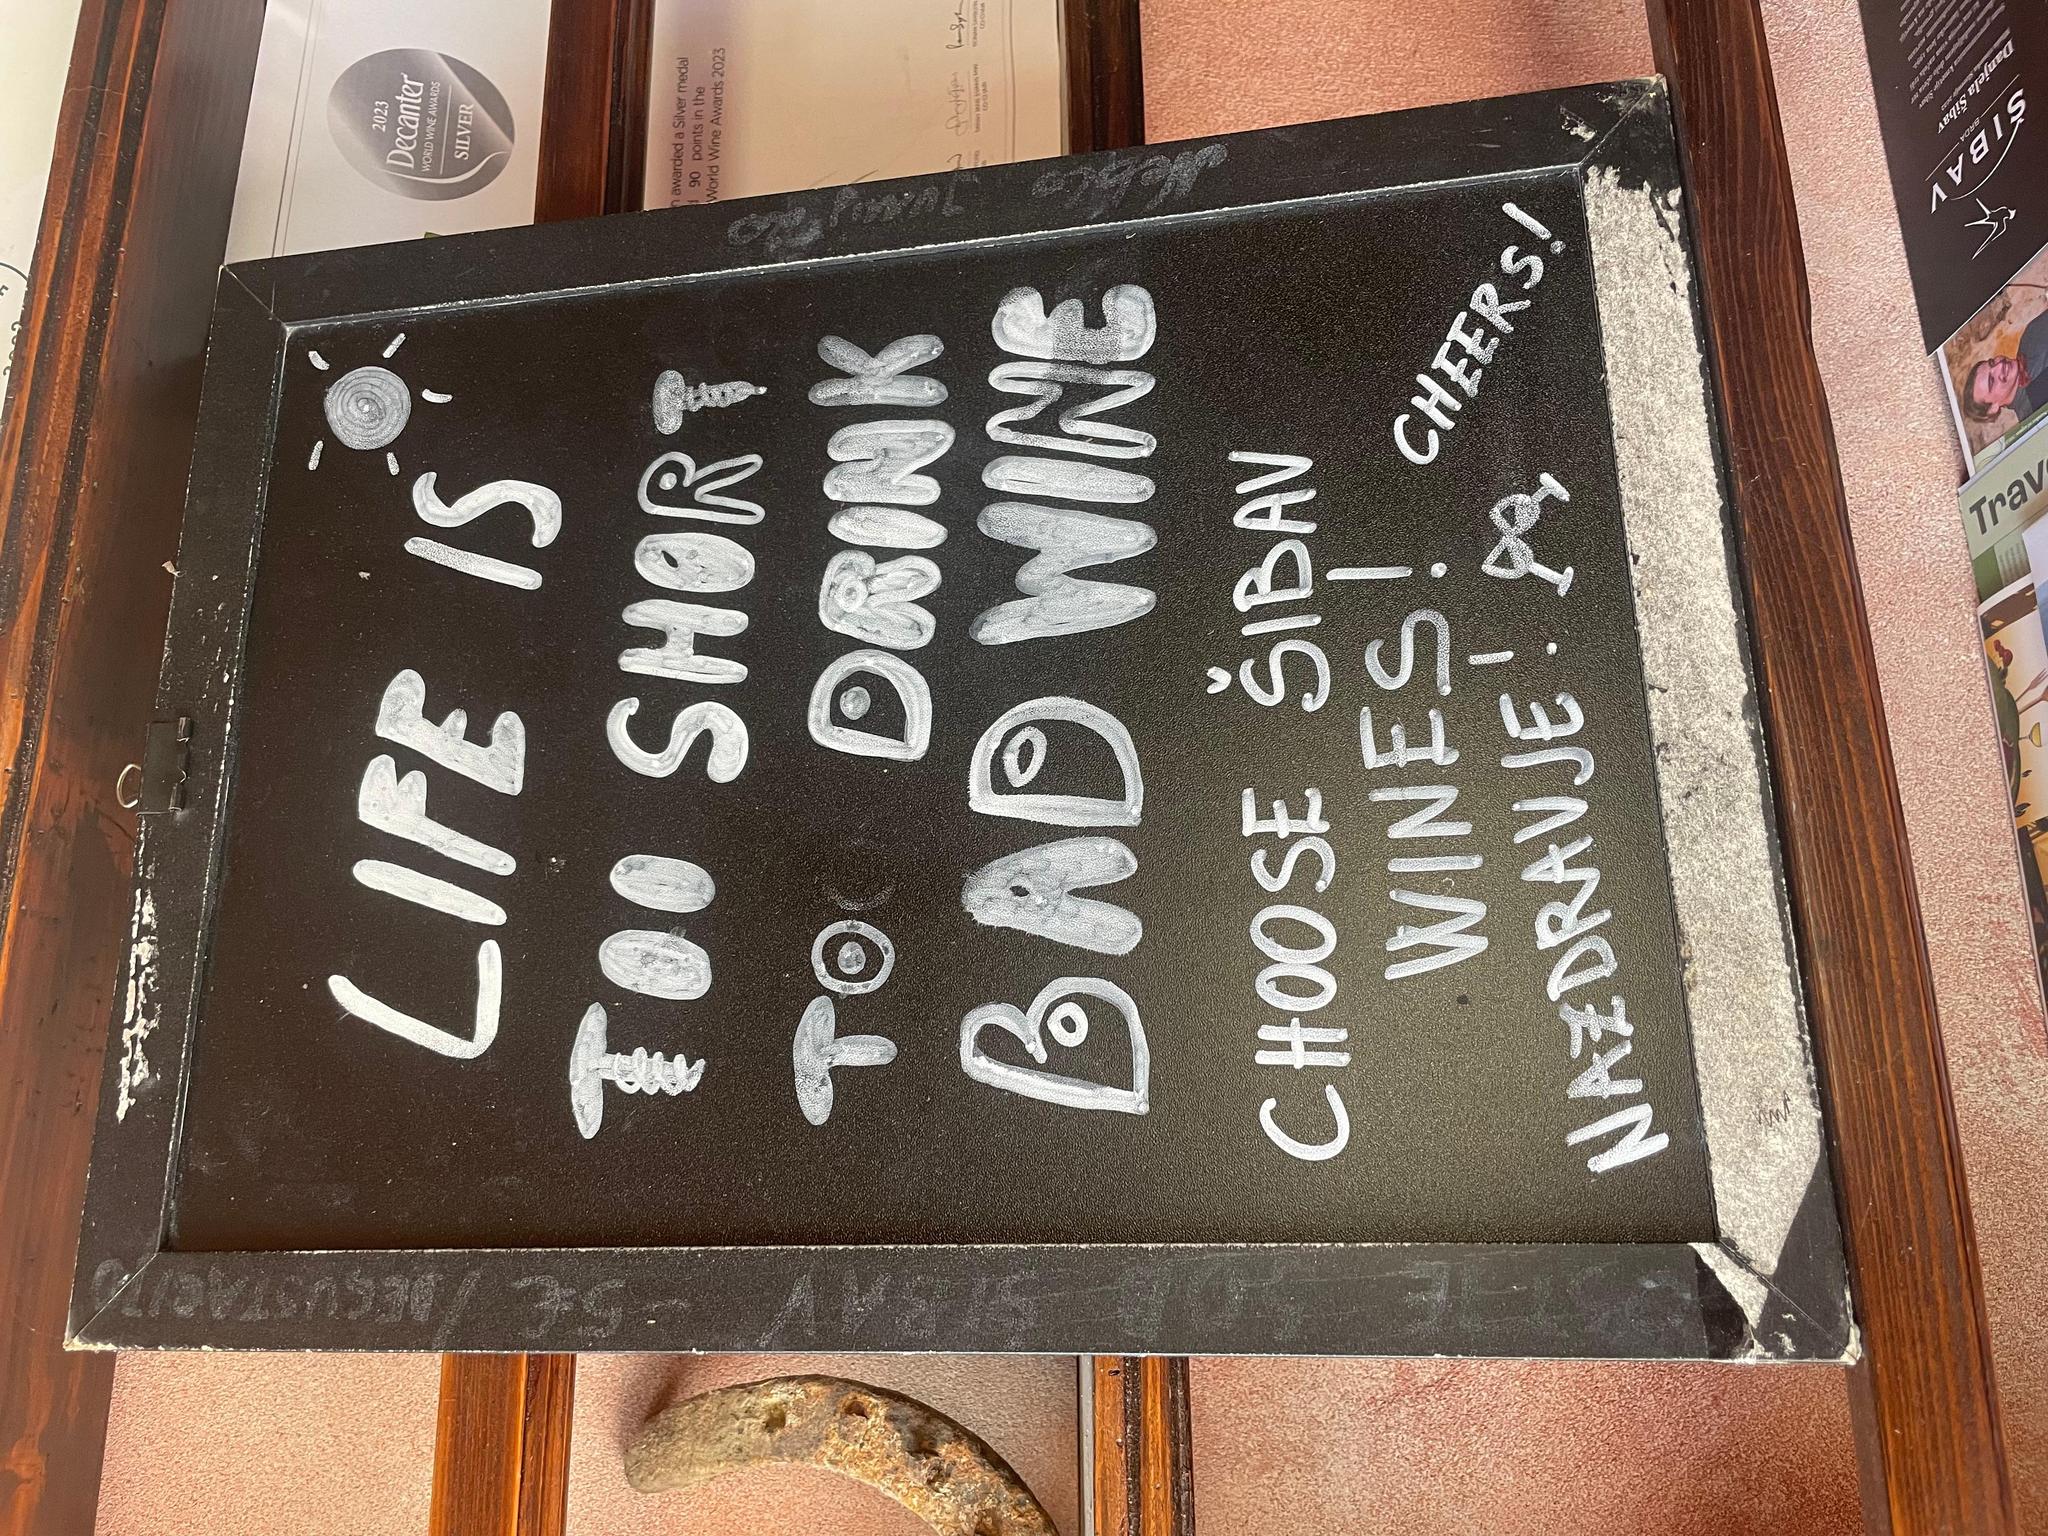 LIFE IS
TOO SHORT
TO DRINK
BAD WINE
CHOOSE ŠIBAV
WINES!
NAZDRAVJE!
CHEERS!
2023
Decanter
WORLD WINE AWARDS
SILVER
awarded a Silver medal
90 points in the
World Wine Awards 2023
ŠIBAV
BRDA
Danjela Šibav
Trav
SIBAV - 5€ / DEGUSTACIJO